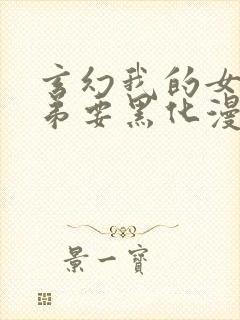 玄幻我的女
弟要黑化漫
景一寶